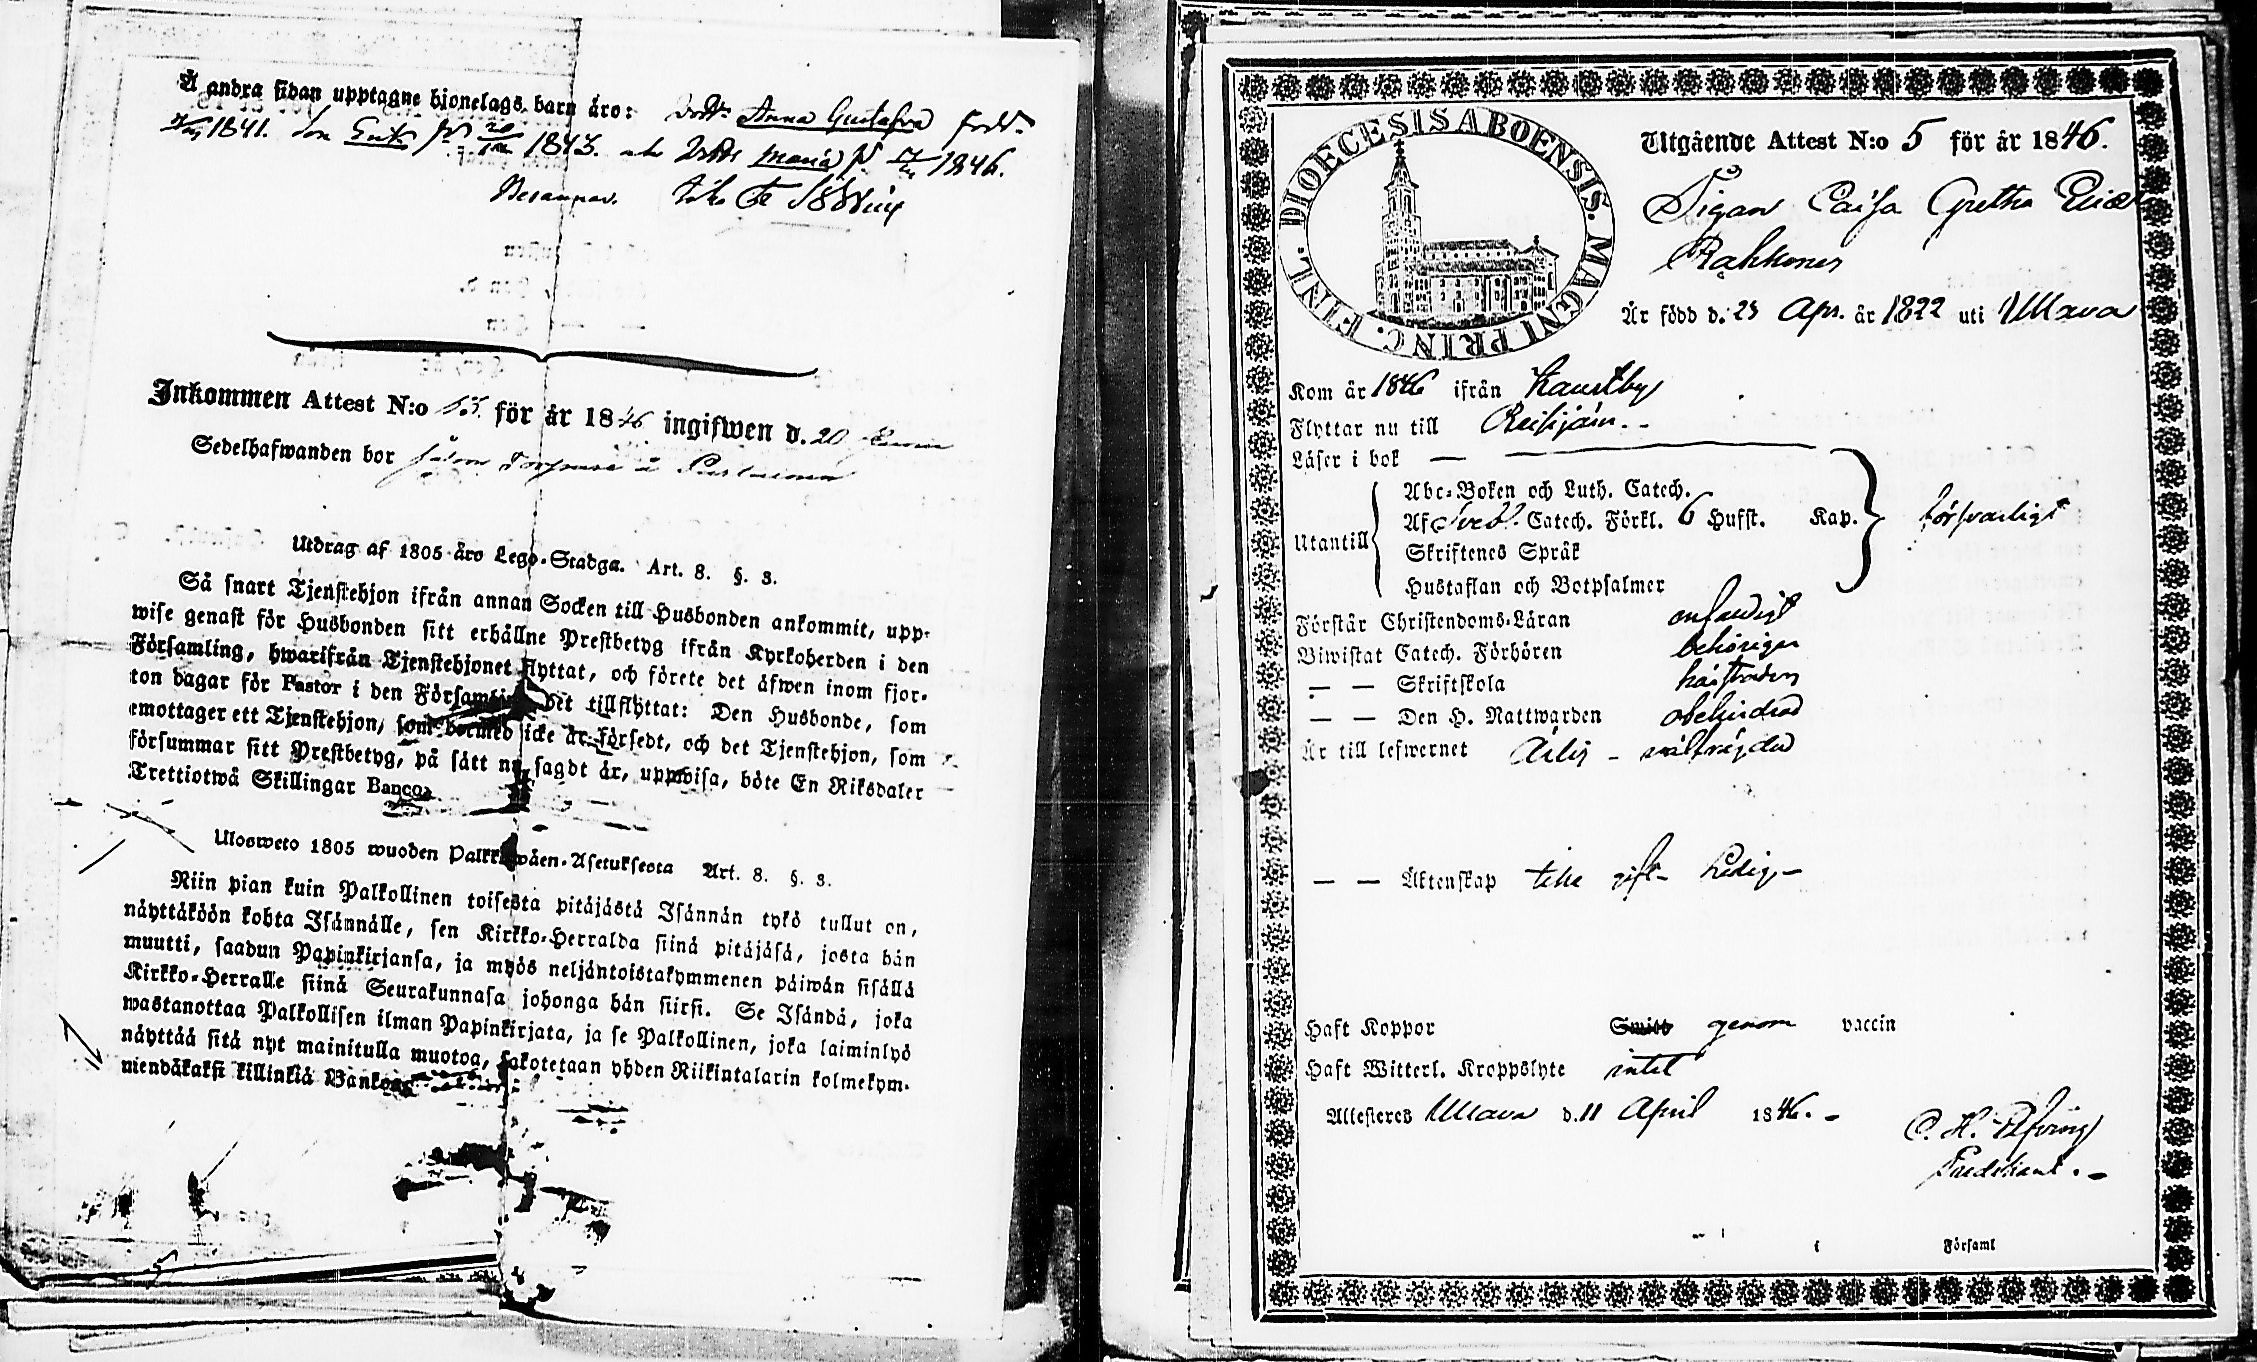 Å andra sidan upptagne hjonelags barn äro: Anna Gustafva född
1841. Son Erik 1843. Maria 1846.
Inkommen Attest N:o för år 1846 ingifwen d. 20
Sedelhafwanden bor
Utdrag af 1805 års Lego-Stadga. Art. 8. §. 3.
Så snart Tjenstehjon ifrån annan Socken till Husbonden ankommit, upp-
wise genast för Husbonden sitt erhållne Prestbetyg ifrån Kyrkoherden i den
Församling, hwarifrån Tjenstehjonet flyttat, och förete det äfwen inom fjor-
ton dagar för Pastor i den Församling det tillflyttat: Den Husbonde, som
emottager ett Tjenstehjon, som dermed icke är försedt, och det Tjenstehjon, som
försummar sitt Prestbetyg, på sätt nu sagdt är, uppwisa, böte En Riksdaler
Trettiotwå Skillingar Banco.
Ulosweto 1805 wuoden Palkkawäen-Asetuksesta Art. 8. §. 3.
Niin pian kuin Palkollinen toisesta pitäjästä Isännän tykö tullut on,
näyttäköön kohta Isännälle, sen Kirkko-Herralda siinä pitäjäsä, josta hän
muutti, saadun Papinkirjansa, ja myös neljäntoistakymmenen päiwän sisällä
Kirkko-Herralle siinä Seurakunnasa johonga hän siirsi. Se Isändä, joka
wastanottaa Palkollisen ilman Papinkirjata, ja se Palkollinen, joka laiminlyö
näyttää sitä nyt mainitulla muotoa, sakotetaan yhden Riikintalarin kolmekym-
mendäkaksi killinkiä Bankosa
DIOECESIS ABOENSIS. MAGNI PRINC. FINL.
Utgående Attest N:o 5 för år 1846.
Pigan Caisa Gretha
Rahkonen
Är född d. 23 Apr. år 1822 uti Ullava
Kom år 1846 ifrån Kaustby
Flyttar nu till Reisjärvi
Läser i bok
Utantill
Abc-Boken och Luth. Catech.
Af Sveb. Catech. Förkl. 6 Hufst. Kap. försvarligt
Skriftenes Språk
Hustaflan och Botpsalmer
Förstår Christendoms-Läran enfaldigt
Biwistat Catech. Förhören behörigen
— — Skriftskola
— — Den H. Nattwarden obehindrad
Är till lefwernet ärlig - välfrägdad
— — Äktenskap icke gift ledig -
Haft Koppor Smitt genom vaccin
Haft Witterl. Kroppslyte intet
Attesteres Ullava d. 11 April 1846. -
C. H. Alfving
Predikant. -
i Församl